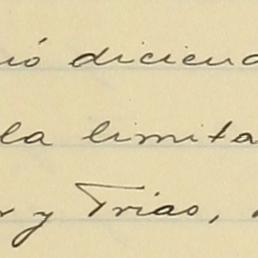 ió diciend
la limita
r y Trias,